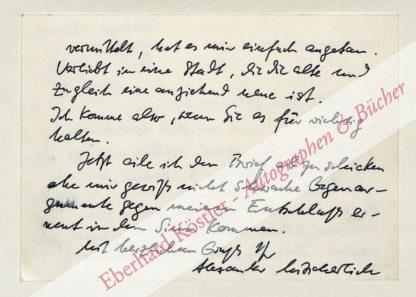 vermittelt, hat es mir einfach angetan.
Verliebt in eine Stadt, die die alte und
zugleich eine anziehend neue ist.
Ich komme also, wenn Sie es für wichtig
halten.
Jetzt eile ich den Brief abzuschicken
ehe mir gewiß nicht schwache Gegenar-
gumente gegen meinen Entschluß er-
neut in den Sinn kommen.
Mit herzlichem Gruß Ihr
Alexander Mitscherlich
Eberhard Köstler - Autographen & Bücher